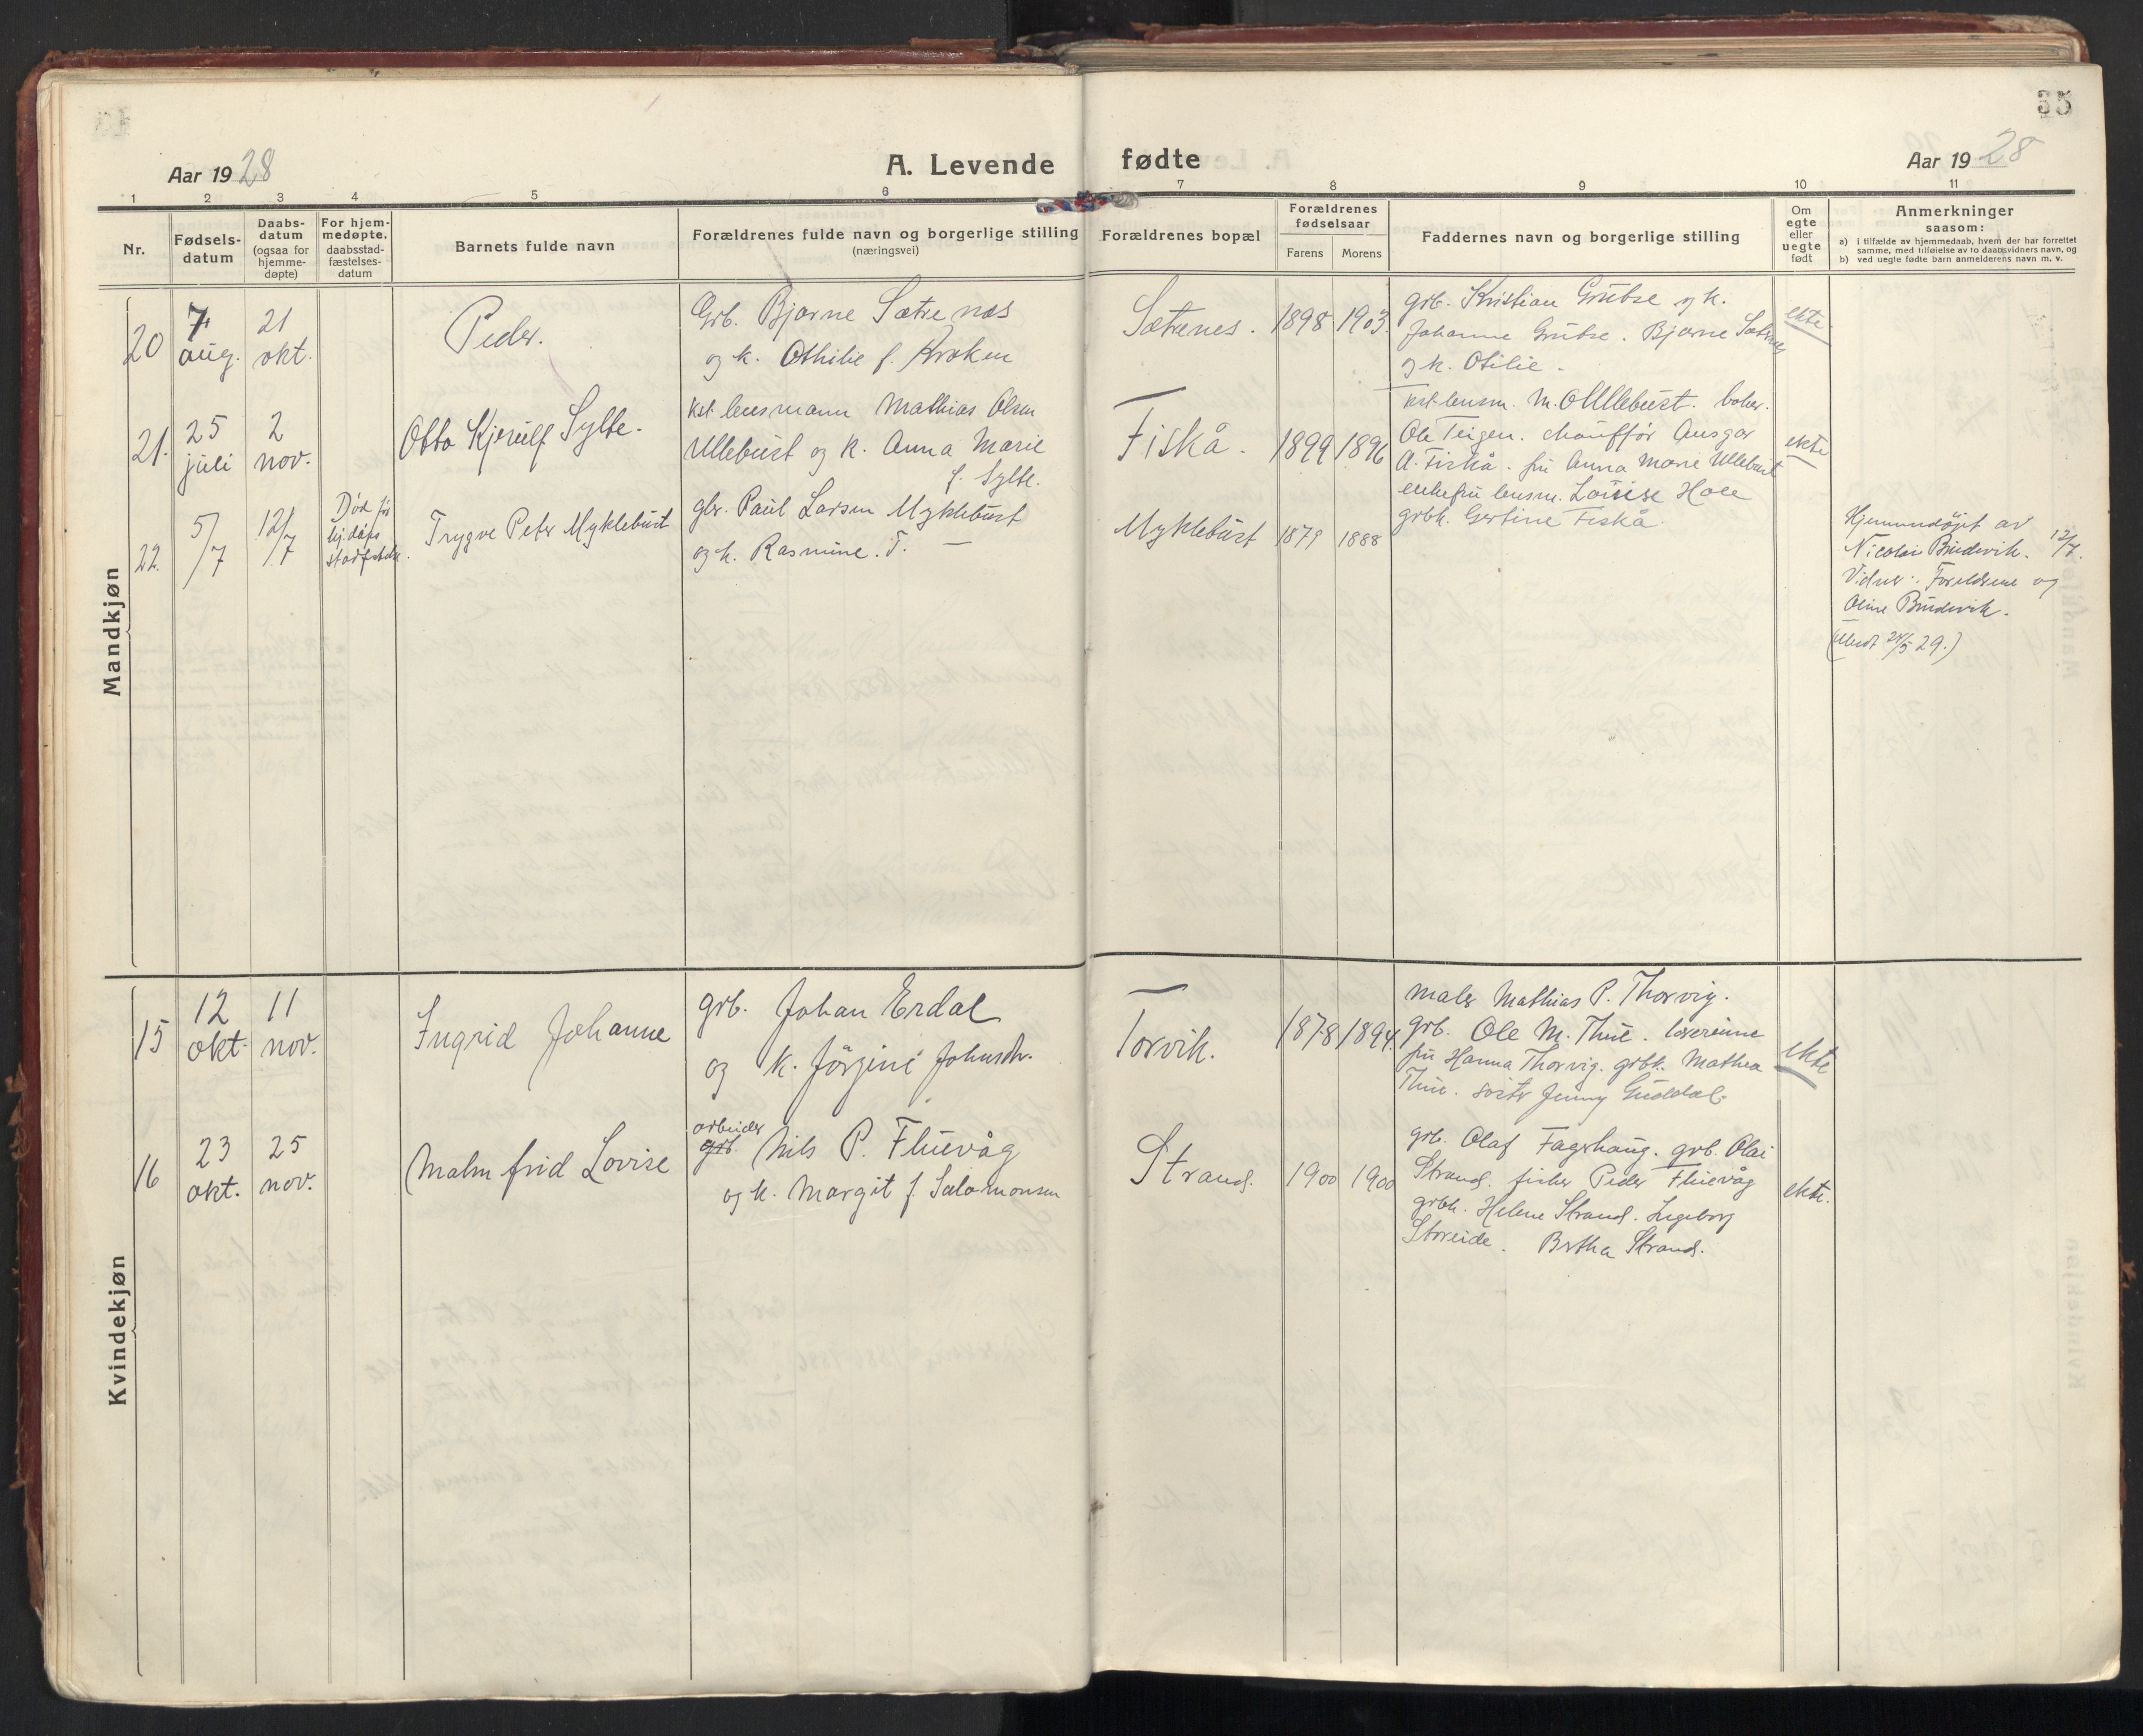 35
Aar 1928
A. Levende fødte
Aar 1928
1 2 3 4 5 6 7 8 9 10 11
Nr.
Fødsels-
datum
Daabs-
datum
(ogsaa for
hjemme-
døpte)
For hjem-
medøpte,
daabsstad-
fæstelses-
datum
Barnets fulde navn
Forældrenes fulde navn og borgerlige stilling
(næringsvei)
Forældrenes bopæl
Forældrenes
fødselsaar
Farens Morens
Faddernes navn og borgerlige stilling
Om
egte
eller
uegte
født
Anmerkninger
saasom:
a) i tilfælde av hjemmedaab, hvem der har forrettet
samme, med tilføielse av to daabsvidners navn, og
b) ved uegte fødte barn anmelderens navn m. v.
Mandkjøn
20
7
aug.
21
okt.
Peder.
Grb. Bjarne Sætrenes
og k. Othilie f. Kroken
Sætrenes.
1898 1903.
grb. Kristian Grubse og k.
Johanne Grubse. Bjarne Sætrenes
og k. Otilie.
ekte.
21.
25
juli
2
nov.
Otto Kjerulf Sylte.
kst. lensmann Mathias Olsen
Ullebust og k. Anna Marie
f. Sylte.
Fiskå.
1899 1896
kst. lensm. M. O. Ullebust.
Ole Teigen. chauffør Ansgar
A. Fiskå. fru Anna Marie Ullebust
enkefru lensm. Louise Hole
grbk. Gertine Fiskå.
ekte
22.
5/7
12/7
Død før
hj.dåps
stadfestelse.
Trygve Peter Myklebust
gbr. Paul Larsen Myklebust
og k. Rasmine. T. —
Myklebust
1879 1888
Hjemmedøpt av
Nicolai Brudevik. 12/7.
Vidner: Foreldrene og
Oline Brudevik.
(Meldt 24/5 29.)
Kvindekjøn
15
12
okt.
11
nov.
Ingrid Johanne
grb. Johan Erdal
og k. Jörgine Johnsdtr.
Torvik.
1878 1894.
maler Mathias P. Thorvig.
grb. Ole M. Thue. lærerinne
fru Hanna Thorvig. grbk. Mathea
Thue. söster Jenny Guddal.
ekte
16
23
okt.
25
nov.
Malmfrid Lovise
arbeider
grb. Nils P. Fluevåg
og k. Margit f. Salomonsen
Strand.
1900 1900
grb. Olaf Fagerhaug. grb. Olai
Strand. fisker Peder Fluevåg
grbk. Helene Strand. Ingeborg
Storeide. Bertha Strand.
ekte.